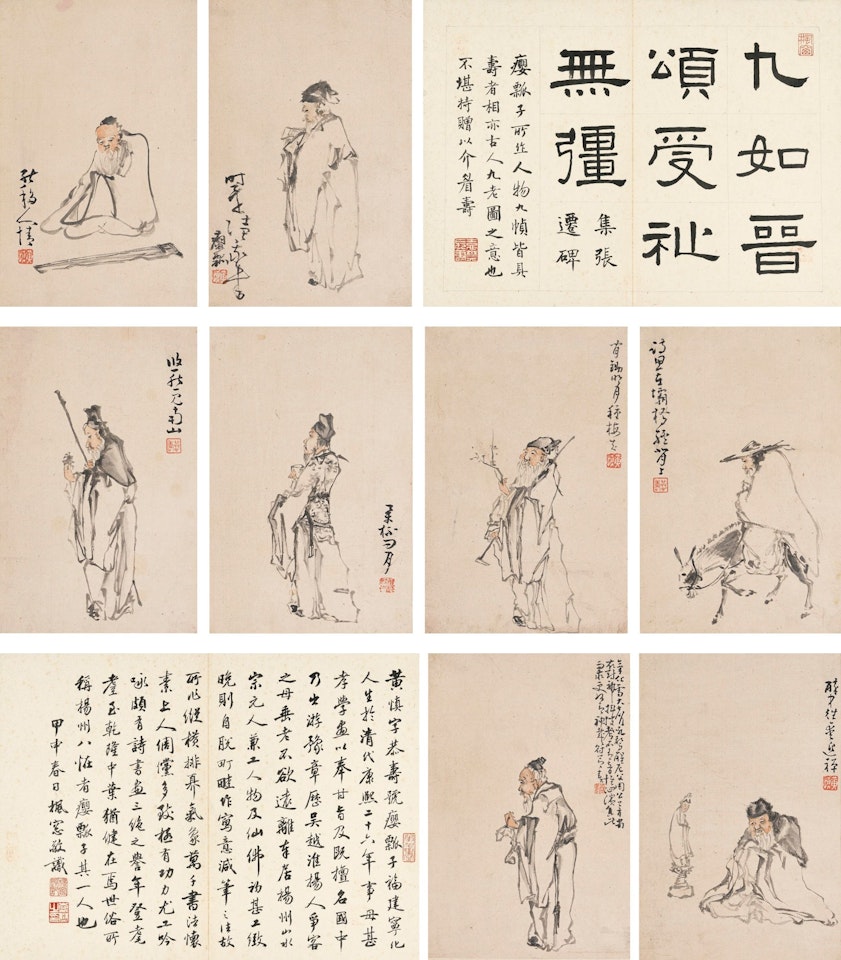 九如晉
頌受祉
無彊
集張
遷碑
癭瓢子所作人物九幀皆具
壽者相亦古人九老圖之意也
不堪持贈以介眉壽
時來讀我書
癭瓢
能移人情
詩思在灞橋驢背上
肯鋤明月種梅花
舉杯問月
悠然見南山
醉中往往愛逃禪
黃慎字恭壽號癭瓢子福建寧化
人生於清代康熙二十六年事母甚
孝學畫以奉甘旨及既擅名國中
乃出游豫章歷吳越淮揚人爭客
之母垂老不欲遠離奉居揚州山水
宗元人兼工人物及仙佛初甚工緻
晚則自脫町畦作寫意減筆之法故
所作縱橫排奡氣象萬千書法懷
素上人倜儻多致極有功力尤工吟
咏頗有詩書畫三絕之譽年登耄
耋至乾隆中葉猶健在焉世俗所
稱揚州八怪者癭瓢子其一人也
甲申春日楓窓敬識